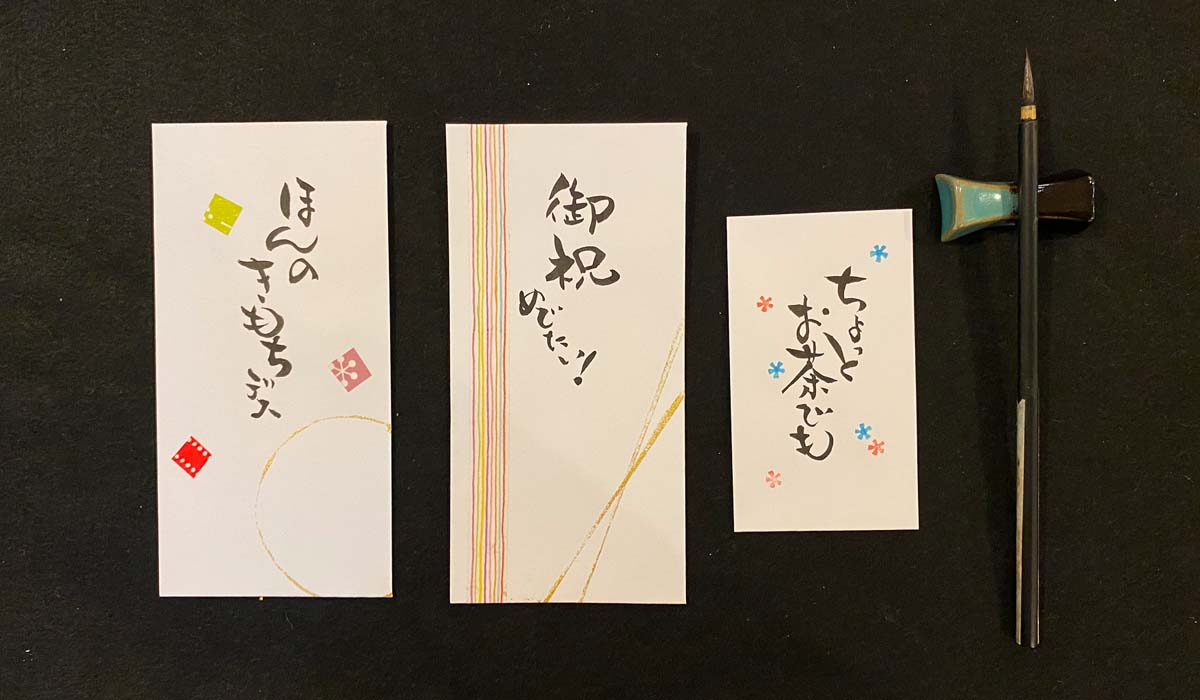 ほんの
きもちデス
御祝
めでたい!
ちょっと
お茶でも